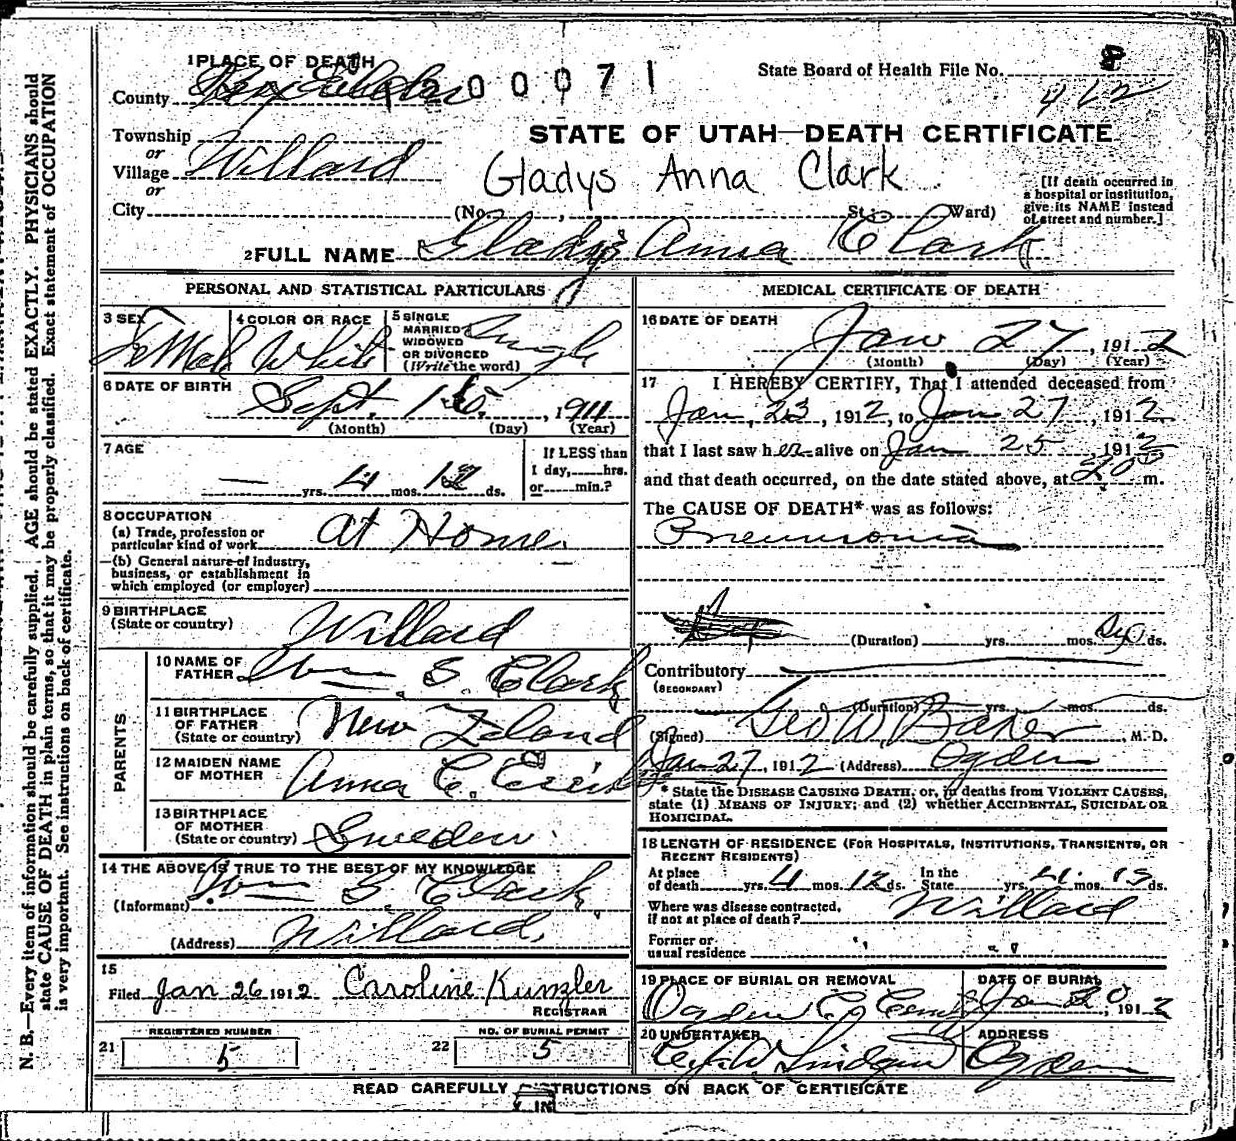 1 PLACE OF DEATH
County Box Elder
00071
State Board of Health File No. 8
412
Township
or
Village Willard
or
City
STATE OF UTAH—DEATH CERTIFICATE
Gladys Anna Clark
(No. , St.; Ward)
[If death occurred in
a hospital or institution,
give its NAME instead
of street and number.]
2 FULL NAME Gladys Anna Clark
PERSONAL AND STATISTICAL PARTICULARS
3 SEX Female
4 COLOR OR RACE White
5 SINGLE
MARRIED
WIDOWED
OR DIVORCED
(Write the word)
Single
6 DATE OF BIRTH
Sept. 15, 1911
(Month) (Day) (Year)
7 AGE
— yrs. 4 mos. 12 ds.
If LESS than
1 day, hrs.
or min.?
8 OCCUPATION
(a) Trade, profession or
particular kind of work At Home.
(b) General nature of industry,
business, or establishment in
which employed (or employer)
9 BIRTHPLACE
(State or country) Willard
PARENTS
10 NAME OF
FATHER Wm S. Clark
11 BIRTHPLACE
OF FATHER
(State or country) New Zeland
12 MAIDEN NAME
OF MOTHER Anna C.
13 BIRTHPLACE
OF MOTHER
(State or country) Sweden
14 THE ABOVE IS TRUE TO THE BEST OF MY KNOWLEDGE
(Informant) Wm S. Clark
(Address) Willard.
15
Filed Jan 26 1912 Caroline Kunzler
REGISTRAR
REGISTERED NUMBER
21 5
NO. OF BURIAL PERMIT
22 5
MEDICAL CERTIFICATE OF DEATH
16 DATE OF DEATH
Jan 27, 1912
(Month) (Day) (Year)
17 I HEREBY CERTIFY, That I attended deceased from
Jan, 23, 1912, to Jan 27, 1912
that I last saw her alive on Jan 25 1912
and that death occurred, on the date stated above, at m.
The CAUSE OF DEATH* was as follows:
Pneumonia
(Duration) yrs. mos. ds.
Contributory
(SECONDARY)
(Duration) yrs. mos. ds.
(Signed) Geo W. Baker, M. D.
Jan 27, 1912 (Address) Ogden
* State the DISEASE CAUSING DEATH, or, in deaths from VIOLENT CAUSES,
state (1) MEANS OF INJURY; and (2) whether ACCIDENTAL, SUICIDAL OR
HOMICIDAL.
18 LENGTH OF RESIDENCE (FOR HOSPITALS, INSTITUTIONS, TRANSIENTS, OR
RECENT RESIDENTS)
At place
of death yrs. 4 mos. 12 ds.
In the
State yrs. 4 mos. ds.
Where was disease contracted,
if not at place of death? Willard
Former or
usual residence " "
19 PLACE OF BURIAL OR REMOVAL
Ogden C Cem
DATE OF BURIAL
Jan , 1912
20 UNDERTAKER
ADDRESS
Ogden
READ CAREFULLY INSTRUCTIONS ON BACK OF CERTIFICATE
N. B.—Every item of information should be carefully supplied. AGE should be stated EXACTLY. PHYSICIANS should
state CAUSE OF DEATH in plain terms, so that it may be properly classified. Exact statement of OCCUPATION
is very important. See instructions on back of certificate.